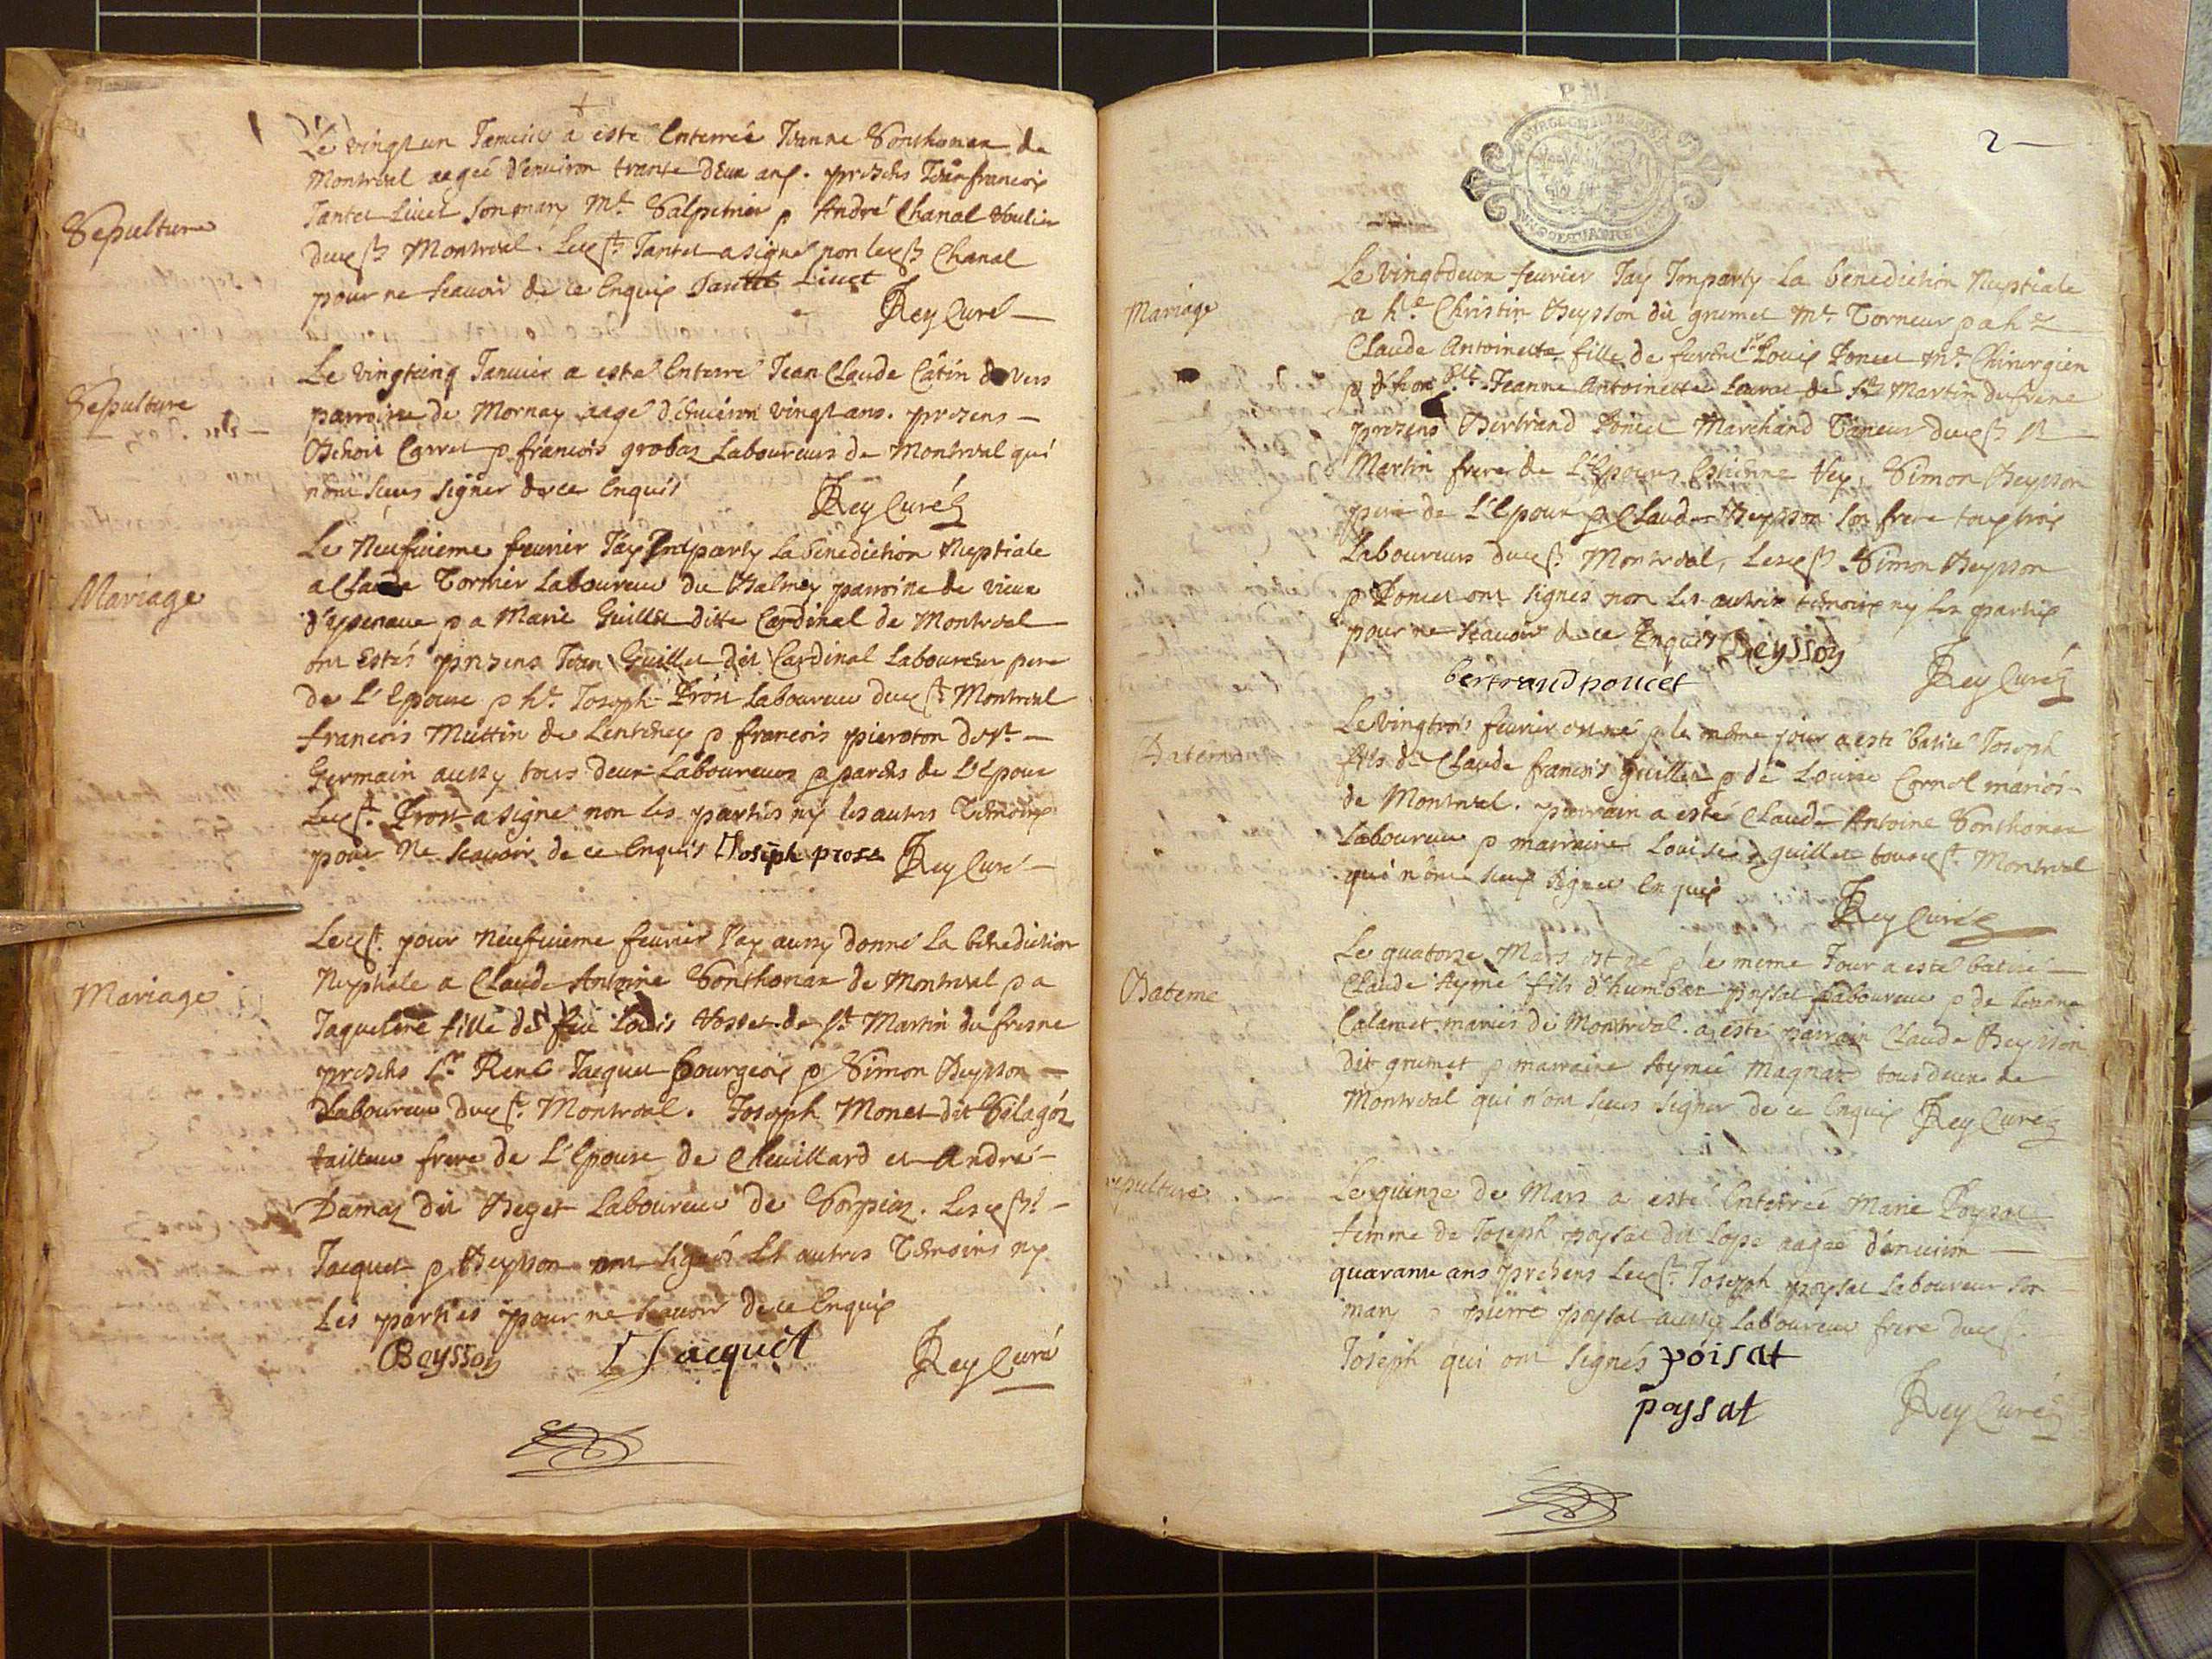 Sepulture
Le vingt un Janvier a esté Enterrée Jeanne Sonthonax de
Montreal aagée d'environ trante deux ans. presens Jean francois
Tantet Livet son mary Mt. Salpetrier p André Chanal
Montreal. Tantet a signé non Chanal
pour ne scavoir de ce Enquis Livet
Rey Curé
Sepulture
Le vingtcinq Janvier a esté Enterré Jean Claude Catin de Vers
parroisse de Mornay aagé d'Environ vingt ans. presens
Benoit Carret p francois grobas Laboureurs de Montreal qui
n'ont sceus signer de ce Enquis
Rey Curé
Mariage
Le Neufvieme fevrier J'ay la benediction Neptiale
a Claude Tornier Laboureur du Balmey parroisse de vieux
d'ysenave p a Marie Guillet ditte Cardinal de Montreal
ont Estés presens Jean Guillet dit Cardinal Laboureur pere
de L'Epouse p he. Joseph Prost Laboureur Montreal
francois Muttin de Lentenay p francois pieroton de st.
Germain aussy tous deux Laboureurs p parens de L'Epoux
Prost a signé non les parties ny les autres Temoins
pour Ne scavoir de ce Enquis Joseph prost Rey Curé
Mariage
jour Neufvieme fevrier J'ay aussy donné La benediction
Neptiale a Claude Antoine Sonthonax de Montreal p a
Jaqueline fille de feu Louis de st. Martin du fresne
presens Sr. René Jacquet bourgeois p Simon Beysson
Laboureur Montreal. Joseph Monet dit
tailleur frere de L'Epouse de Chevillard et André
Damas dit Beget Laboureur de
Jacquet p Beysson ont signés Les autres Temoins ny
Les parties pour ne scavoir de ce Enquis
Beysson Jacquet Rey Curé
2
Mariage
Le vingtdeux fevrier J'ay Imparty La benediction Neptiale
a he. Christin Beysson dit grumet Mt. Torneur p a
Claude Antoinette fille de Louis Poncet Mt. Chirurgien
p Jeanne Antoinette de St Martin du frene
presens Bertrand Poncet Marchand Taneur St
Martin frere de L'Epouse Estienne Vey, Simon Beysson
pere de L'Epoux p Claude Beysson son frere tous trois
Laboureurs Montreal, Simon Beysson
p Poncet ont signés non Les autres temoins ny Les parties
pour ne scavoir de ce Enquis Beysson
bertrand poncet Rey Curé
Bateme
Le vingtrois fevrier est né p le méme jour a esté batisé Joseph
fils de Claude francois Guillet p de Louise Carret mariés
de Montreal. parrain a esté Claude Antoine Sonthonax
Laboureur p marraine Louise guillet Montreal
qui n'ont sceus signer Enquis
Rey Curé
Bateme
Le quatorze Mars est né p le meme Jour a esté batisé
Claude Aymé fils d'humbert poysat Laboureur p de
Calamet mariés de Montreal. a esté parrain Claude Beysson
dit grumet p marraine Aymée Magnard tous deux de
Montreal qui n'ont sceus signer de ce Enquis Rey Curé
sepulture
Le quinze de Mars a esté Enterrée Marie Poysat
femme de Joseph poysat dit aagée d'environ
quarante ans presens Joseph poysat Laboureur son
mary p pierre poysat aussy Laboureur frere
Joseph qui ont signés poisat
poysat Rey Curé